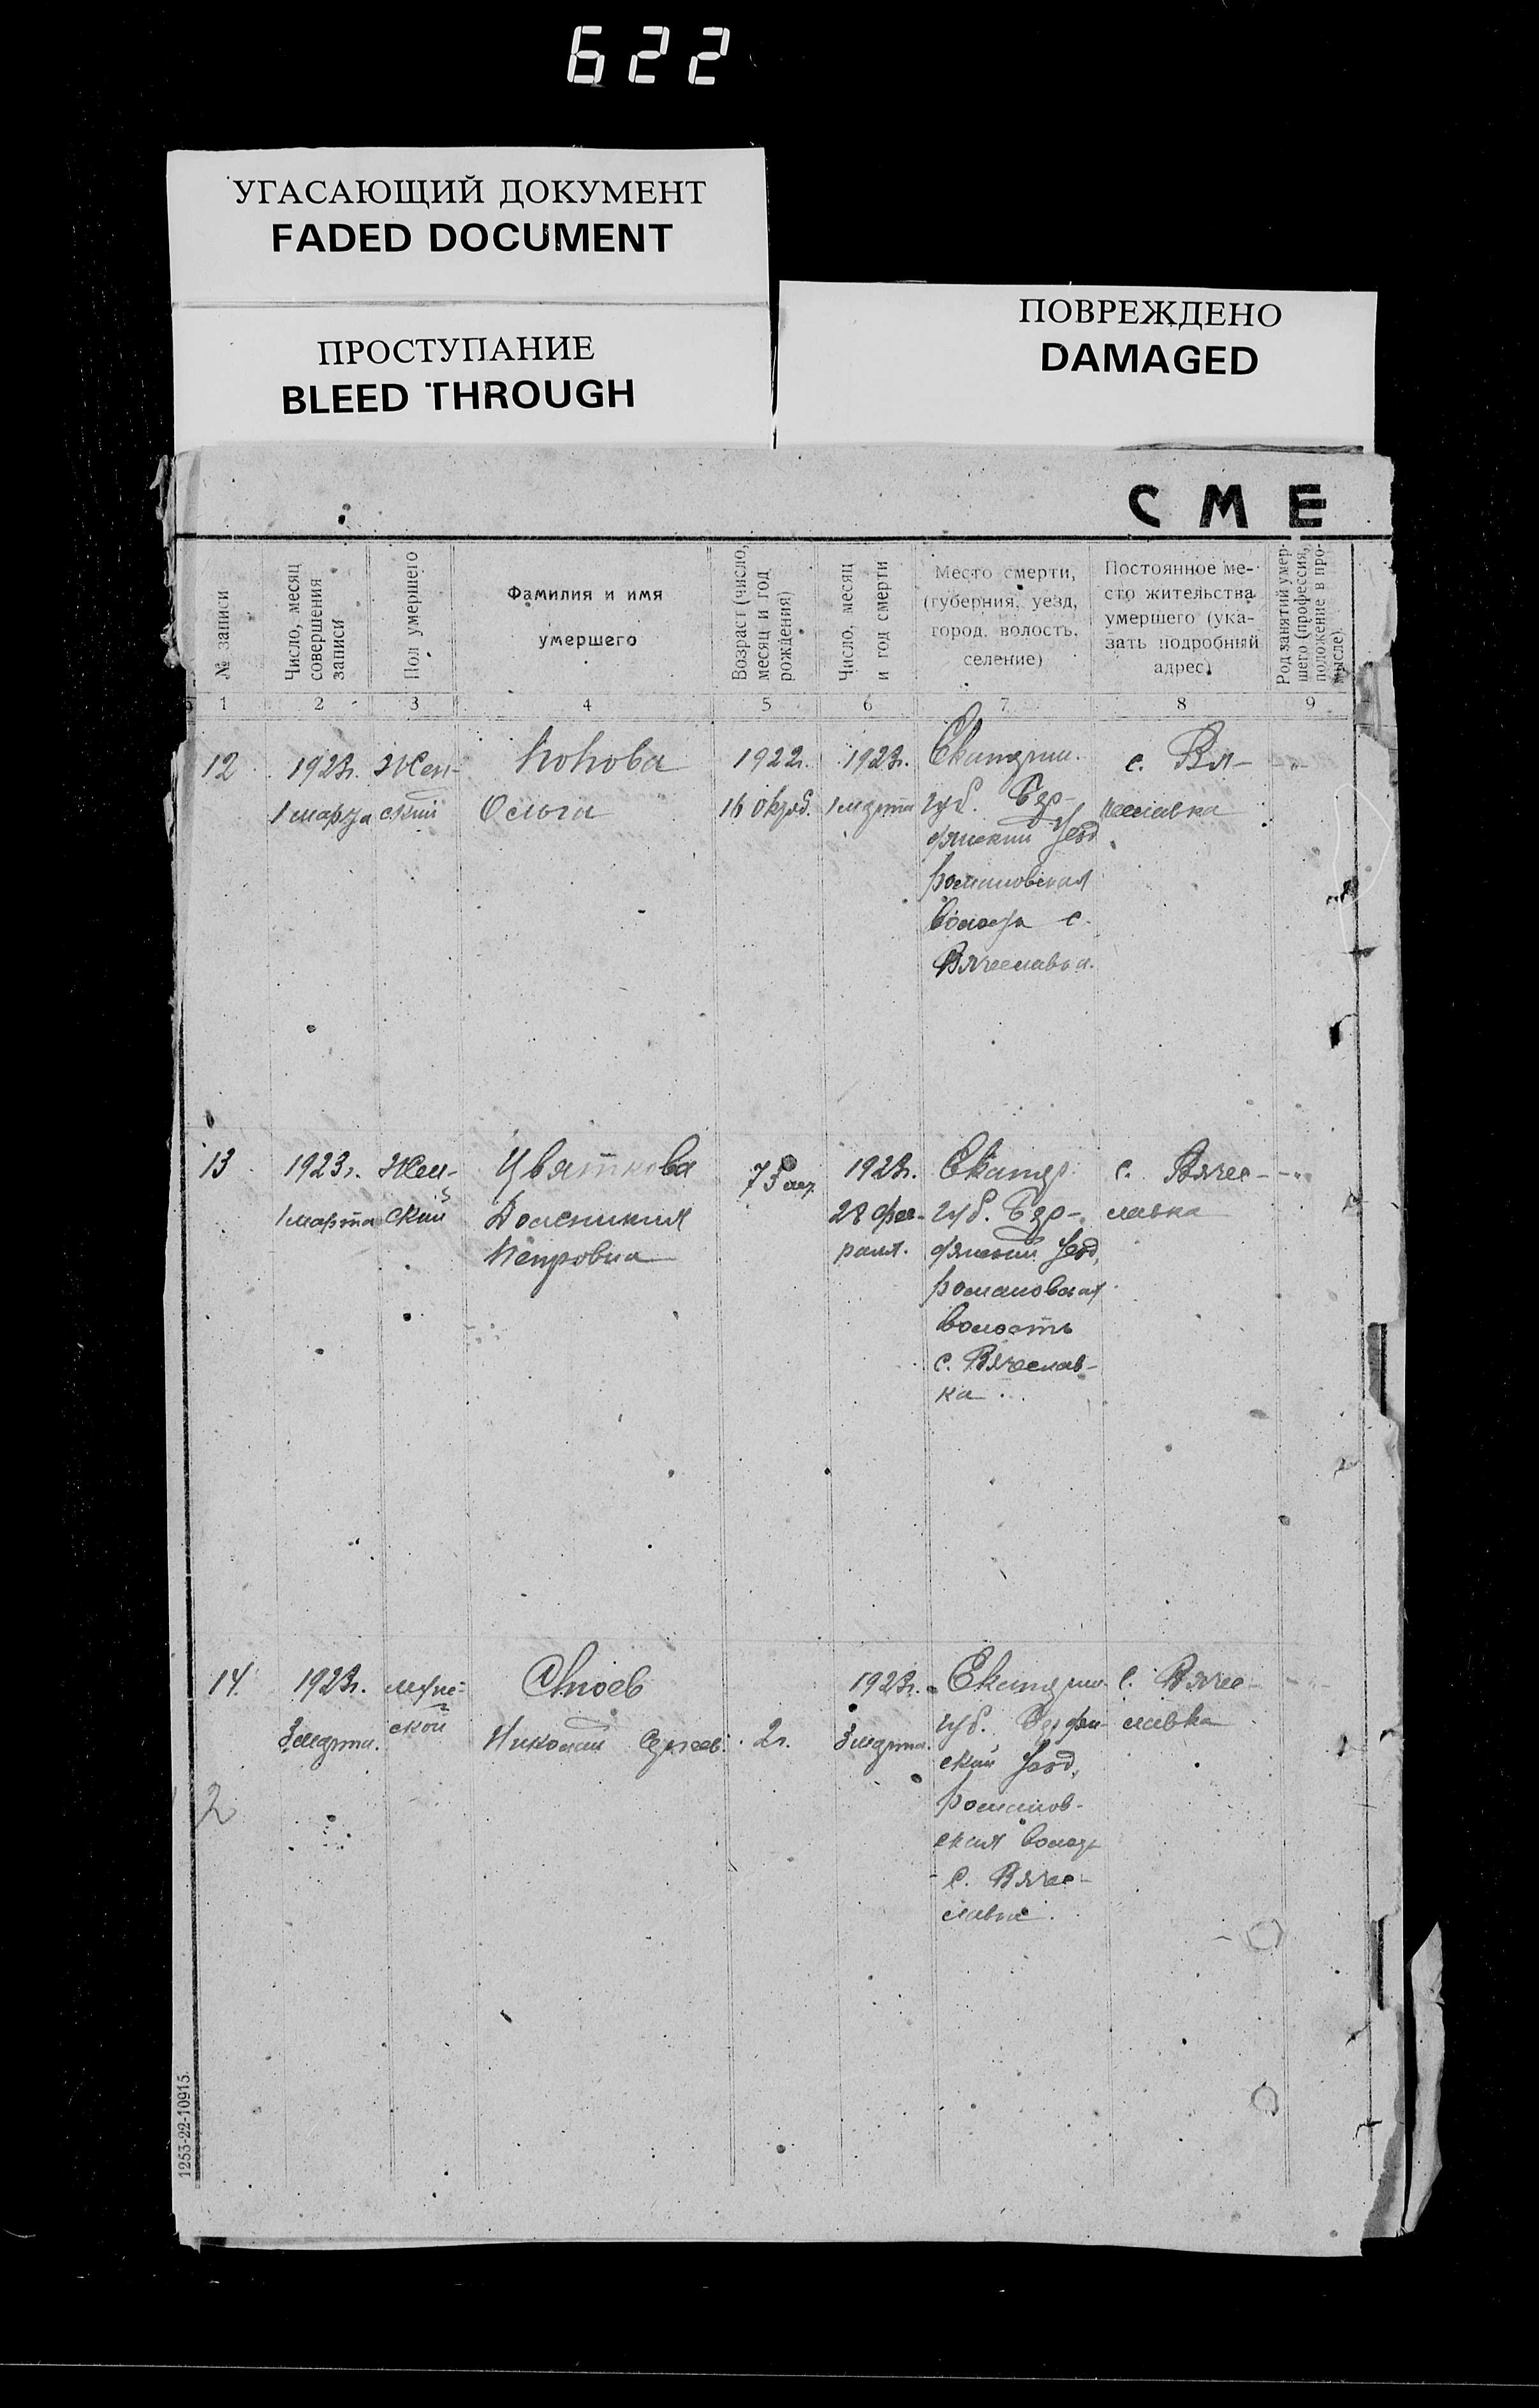 622
УГАСАЮЩИЙ ДОКУМЕНТ
FADED DOCUMENT
ПРОСТУПАНИЕ
BLEED THROUGH
ПОВРЕЖДЕНО
DAMAGED
СМЕ
№ записи
Число, месяц
совершения
записи
Пол умершего
Фамилия и имя
умершего
Возраст (число,
месяц и год
рождения)
Число, месяц
и год смерти
Место смерти,
(губерния, уезд,
город, волость,
селение)
Постоянное ме-
сто жительства
умершего (ука-
зать подробный
адрес)
Род занятий умер-
шего (профессия,
положение в про-
мысле).
1 2 3 4 5 6 7 8 9
12
1923г.
1 марта
Жен-
ский
Попова
Ольга
1922г.
16 октяб.
1923г.
1 марта
Екатерин.
губ. Бер-
дянский уезд
Романовская
волость с.
Вячеславка.
с. Вя-
чеславка
-"-
13
1923г.
1 марта
Жен-
ский
Цвяткова
Доменикия
Петровна
75 лет
1923г.
28 фев-
раля.
Екатер.
губ. Бер-
дянский уезд,
Романовская
волость
с. Вячеслав-
ка.
с. Вяче-
славка
-"-
14
1923г.
3 марта.
муже-
ской
Стоев
Николай Сергеев.
2г.
1923г.
3 марта.
Екатерин
губ. Бердян
ский уезд,
Романов-
ская волость
с. Вяче-
славка.
с. Вяче-
славка
-"-
2
1253-22-10915.